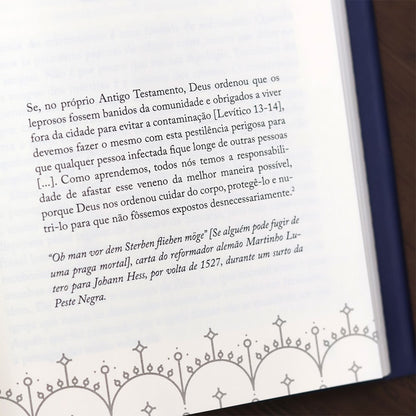 Se, no próprio Antigo Testamento, Deus ordenou que os
leprosos fossem banidos da comunidade e obrigados a viver
fora da cidade para evitar a contaminação [Levítico 13-14],
devemos fazer o mesmo com esta pestilência perigosa para
que qualquer pessoa infectada fique longe de outras pessoas
[...]. Como aprendemos, todos nós temos a responsabili-
dade de afastar esse veneno da melhor maneira possível,
porque Deus nos ordenou cuidar do corpo, protegê-lo e nu-
tri-lo para que não fôssemos expostos desnecessariamente.²
“Ob man vor dem Sterben flieben möge” [Se alguém pode fugir de
uma praga mortal], carta do reformador alemão Martinho Lu-
tero para Johann Hess, por volta de 1527, durante um surto da
Peste Negra.